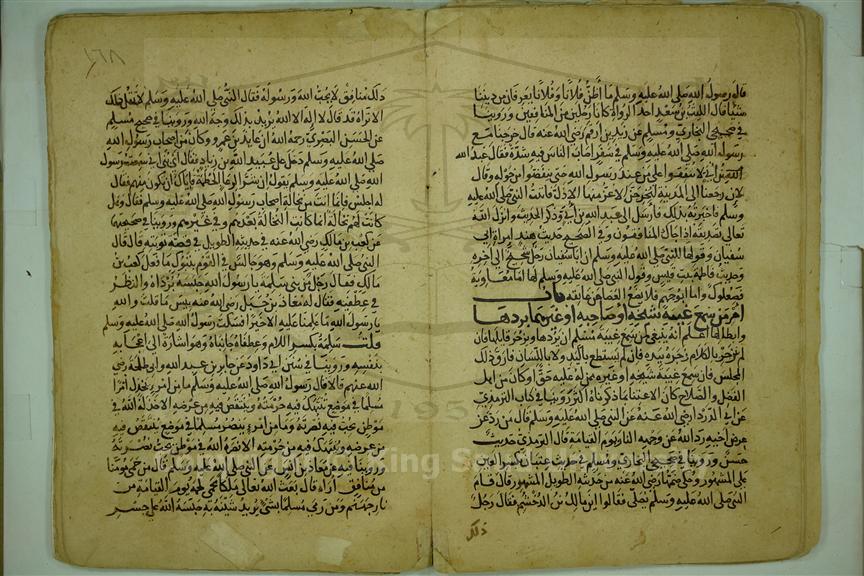 قال رسول الله صلى الله عليه وسلم ما أظن فلانا وفلانا يعرفان من ديننا
شيئا قال الليث بن سعد احد الرواة كانا رجلين من المنافقين وروينا
في صحيحي البخاري ومسلم عن زيد بن ارقم رضي الله عنه قال خرجنا مع
رسول الله صلى الله عليه وسلم في سفر اصاب الناس فيه شدة فقال عبد الله
بن ابي لا تنفقوا على من عند رسول الله حتى ينفضوا من حوله وقال
لئن رجعنا الى المدينة ليخرجن الاعز منها الاذل فاتيت النبي صلى الله عليه
وسلم فاخبرته بذلك فارسل الى عبد الله بن ابي وذكر الحديث وانزل الله
تعالى تصديقه اذا جاك المنافقون وفي الصحيح حديث هند امراة ابي
سفيان وقولها للنبي صلى الله عليه وسلم ان اباسفيان رجل شحيح الى اخره
وحديث فاطمة بنت قيس وقول النبي صلى الله عليه وسلم لها اما معاوية
فصعلوك واما ابو جهم فلا يضع العصا عن عاتقه باب
امر من سمع غيبة شيخه او صاحبه او غيرهما بردها
وابطالها اعلم انه ينبغي لمن سمع غيبة مسلم ان يردها ويزجر قايلها فان
لم ينزجر بالكلام زجره بيده فان لم يستطع باليد ولا باللسان فارق ذلك
المجلس فان سمع غيبة شيخه او غيره ممن له عليه حق او كان من اهل
الفضل والصلاح كان الاعتنا بما ذكرناه اكثر وروينا في كتاب الترمذي
عن ابي الدردا رضي الله عنه عن النبي صلى الله عليه وسلم قال من رد عن
عرض اخيه رد الله عن وجهه النار يوم القيامة قال الترمذي حديث
حسن وروينا في صحيحي البخاري ومسلم في حديث عتبان بكسر العين
على المشهور وحكي ضمها رضي الله عنه في حديثه الطويل المشهور قال قام
النبي صلى الله عليه وسلم يصلي فقالوا اين مالك بن الدخشم فقال رجل
ذلك
١٦٨
ذلك منافق لا يحب الله ورسوله فقال النبي صلى الله عليه وسلم لا تقل ذلك
الا تراه قد قال لا اله الا الله يريد بذلك وجه الله وروينا في صحيح مسلم
عن الحسن البصري رحمه الله ان عايذ بن عمرو وكان من اصحاب رسول الله
صلى الله عليه وسلم دخل على عبيد الله بن زياد فقال اي بني اني سمعت رسول
الله صلى الله عليه وسلم يقول ان شر الرعاء الحطمة فاياك ان تكون منهم فقال
له اجلس فانما انت من نخالة اصحاب رسول الله صلى الله عليه وسلم فقال وهل
كانت لهم نخالة انما كانت النخالة بعدهم وفي غيرهم وروينا في صحيحيهما
عن كعب بن مالك رضي الله عنه في حديثه الطويل في قصة توبته قال قال
النبي صلى الله عليه وسلم وهو جالس في القوم بتبوك ما فعل كعب بن
مالك فقال رجل من بني سلمة يا رسول الله حبسه برداه والنظر
في عطفيه فقال له معاذ بن جبل رضي الله عنه بيس ما قلت والله
يا رسول الله ما علمنا عليه الا خيرا فسكت رسول الله صلى الله عليه وسلم
قلت سلمة بكسر اللام وعطفاه جانباه وهو اشارة الى اعجابه
بنفسه وروينا في سنن ابي داود عن جابر بن عبد الله وابي طلحة رضي
الله عنهم قالا قال رسول الله صلى الله عليه وسلم ما من امرء يخذل امرا
مسلما في موضع تنتهك فيه حرمته وينتقص فيه من عرضه الا خذله الله في
موطن يحب فيه نصرته وما من امرء ينصر مسلما في موضع ينتقص فيه
من عرضه وينتهك فيه من حرمته الا نصره الله في موطن يحب نصرته
وروينا فيه عن معاذ بن انس عن النبي صلى الله عليه وسلم قال من حمى مومنا
من منافق اراه قال بعث الله تعالى ملكا يحمي لحمه يوم القيامة من
نار جهنم ومن رمى مسلما بشي يريد شينه به حبسه الله على جسر